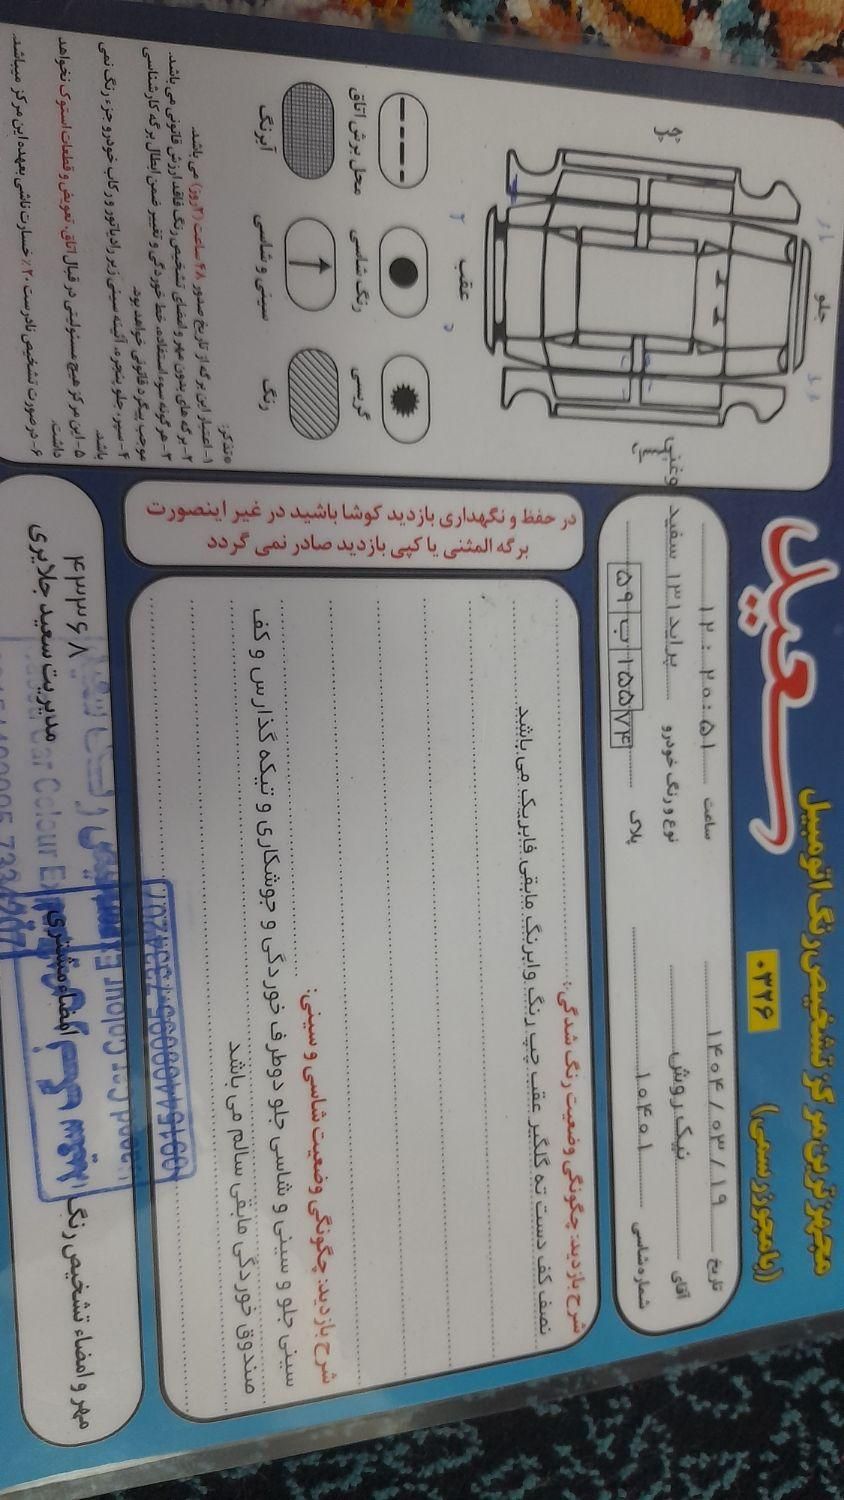 مجهزترین مرکز تشخیص رنگ اتومبیل
سعید
(با مجوز رسمی)
۰۳۲۶
تاریخ ۱۴۰۴/۰۳/۱۹ ساعت ۱۲:۲۰:۵۱
آقای نیک روش نوع و رنگ خودرو پراید ۱۳۱ سفید روغنی
شماره شاسی ۱۰۴۰۱ پلاک ۵۹ ب ۱۵۵ ۷۴
جلو
عقب
محل برش اتاق
رنگ شاسی
گریسی
آبرنگ
سینی و شاسی
رنگ
تذکر:
۱- اعتبار این برگه از تاریخ صدور ۴۸ ساعت (۲روز) می باشد.
۲- برگه های بدون مهر و امضای تشخیص رنگ فاقد ارزش قانونی می باشد.
۳- هر گونه سوء استفاده، خط خوردگی و تغییر ضمن ابطال برگه کارشناسی
موجب پیگرد قانونی خواهد بود.
۴- سپر، جلو پنجره، آئینه سینی زیر رادیاتور و رکاب خودرو جزء رنگ نمی
باشد
۵- این مرکز هیچ مسئولیتی در قبال اتاق، تعویض و قطعات استوک نخواهد
داشت.
۶- در صورت تشخیص نادرست ۲۰٪ خسارت ناشی بعهده این مرکز میباشد.
در حفظ و نگهداری بازدید کوشا باشید در غیر اینصورت
برگه المثنی یا کپی بازدید صادر نمی گردد
شرح بازدید: چگونگی وضعیت رنگ شدگی:
نصف کف دست ته گلگیر عقب چپ رنگ و ابرنگ مابقی فابریک می باشد
شرح بازدید: چگونگی وضعیت شاسی و سینی:
سینی جلو و سینی و شاسی جلو دوطرف خوردگی و جوشکاری و تیکه گذارس و کف
صندوق خوردگی مابقی سالم می باشد
مهر و امضاء تشخیص رنگ
امضاء مشتری
مدیریت سعید جلایری
۴۳۳۶۸